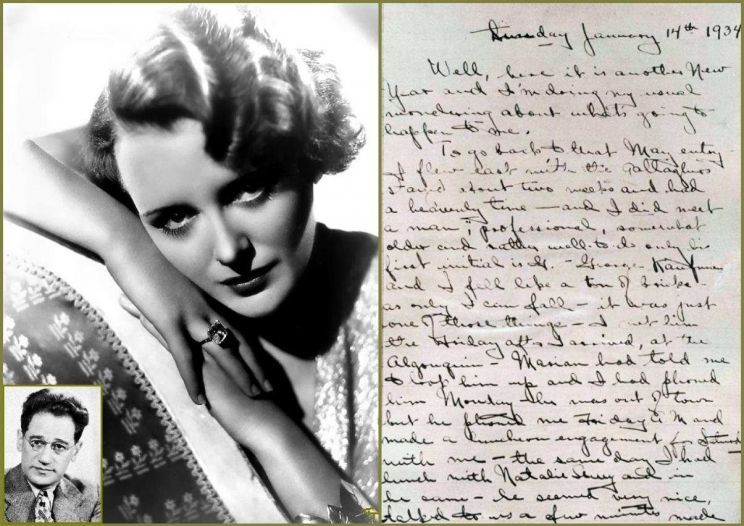 Tuesday January 14th 1934
Well, here it is another New
Year and I'm doing my usual
wondering about what's going to
happen to me.
To go back to that May entry
I flew east with the Gallaghers
stayed about two weeks and had
a heavenly time — and I did meet
a man, professional, somewhat
older and rather well to do only his
first initial is G. – George Kaufman
and I fell like a ton of bricks –
as only I can fall – it was just
one of those things – I met him
the Friday after I arrived, at the
Algonquin – Marian had told me
to him up and I had phoned
him Monday – he was out of town
but he phoned me Friday A M and
made a luncheon engagement for
with me – the same day I had
lunch with and in
he came – he seemed very nice,
talked to us a few minutes made